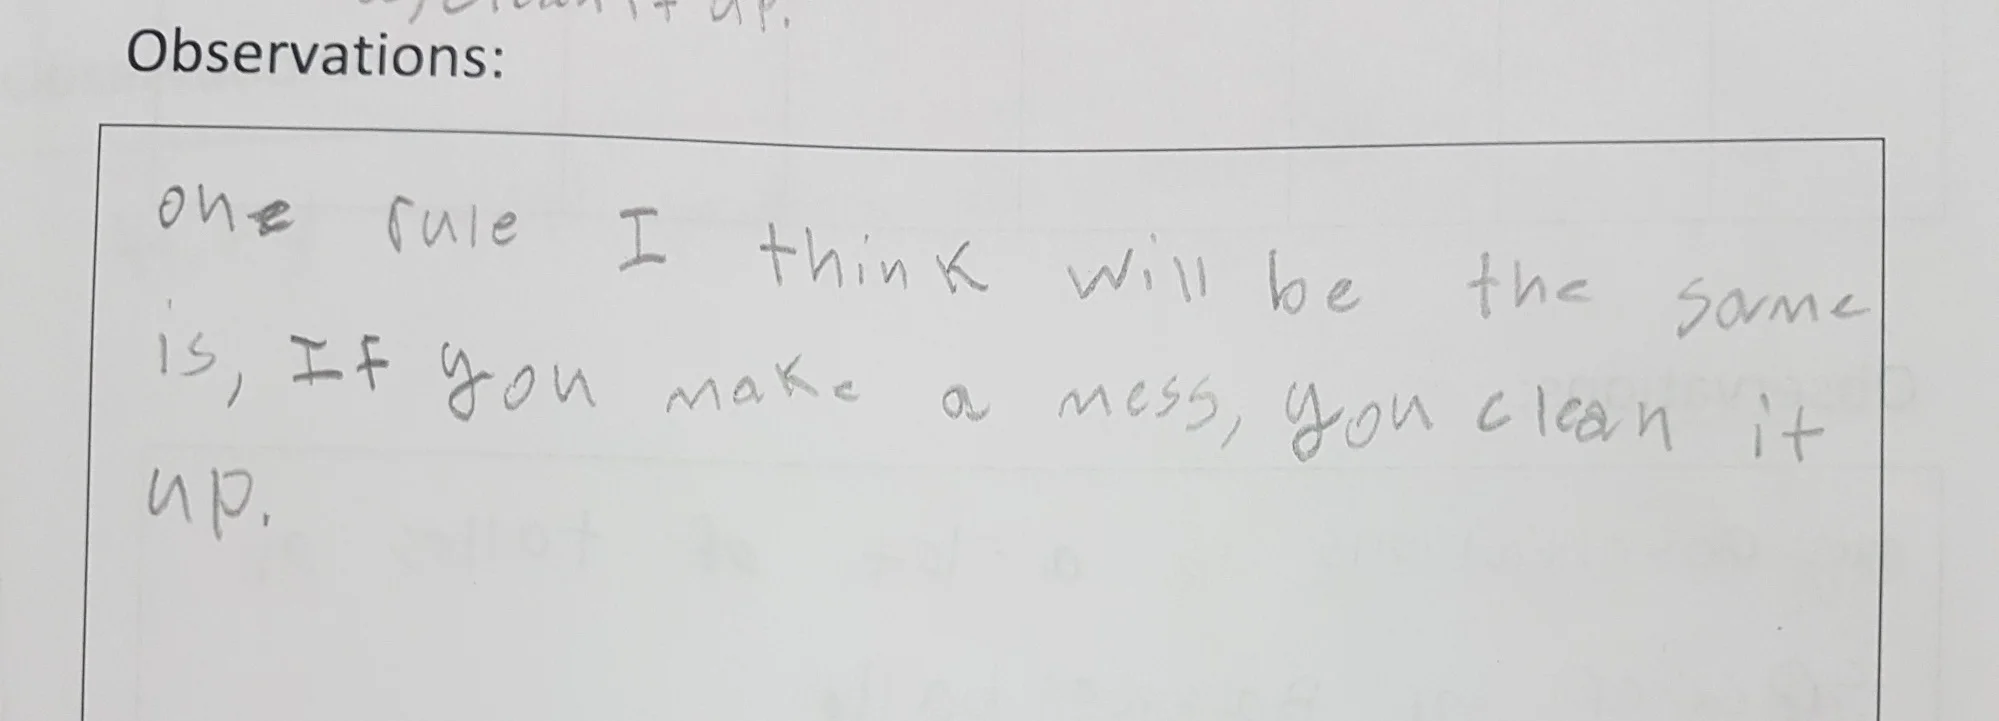 clean it up.
Observations:
one rule I think will be the same
is, If you make a mess, you clean it
up.